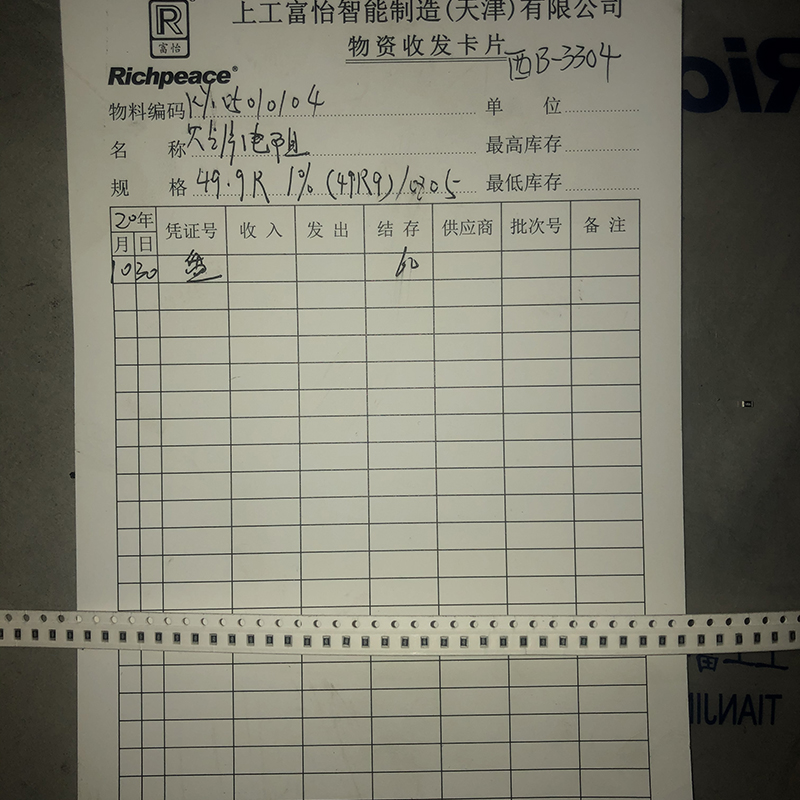 上工富怡智能制造(天津)有限公司
富怡
Richpeace®
物资收发卡片 西B-3304
物料编码 单 位
名 称 电阻 最高库存
规 格 49.9R 1% (49R9)/0805 最低库存
20年 凭证号 收入 发出 结存 供应商 批次号 备注
月 日
10 30 盘
Ric
TIANJIN